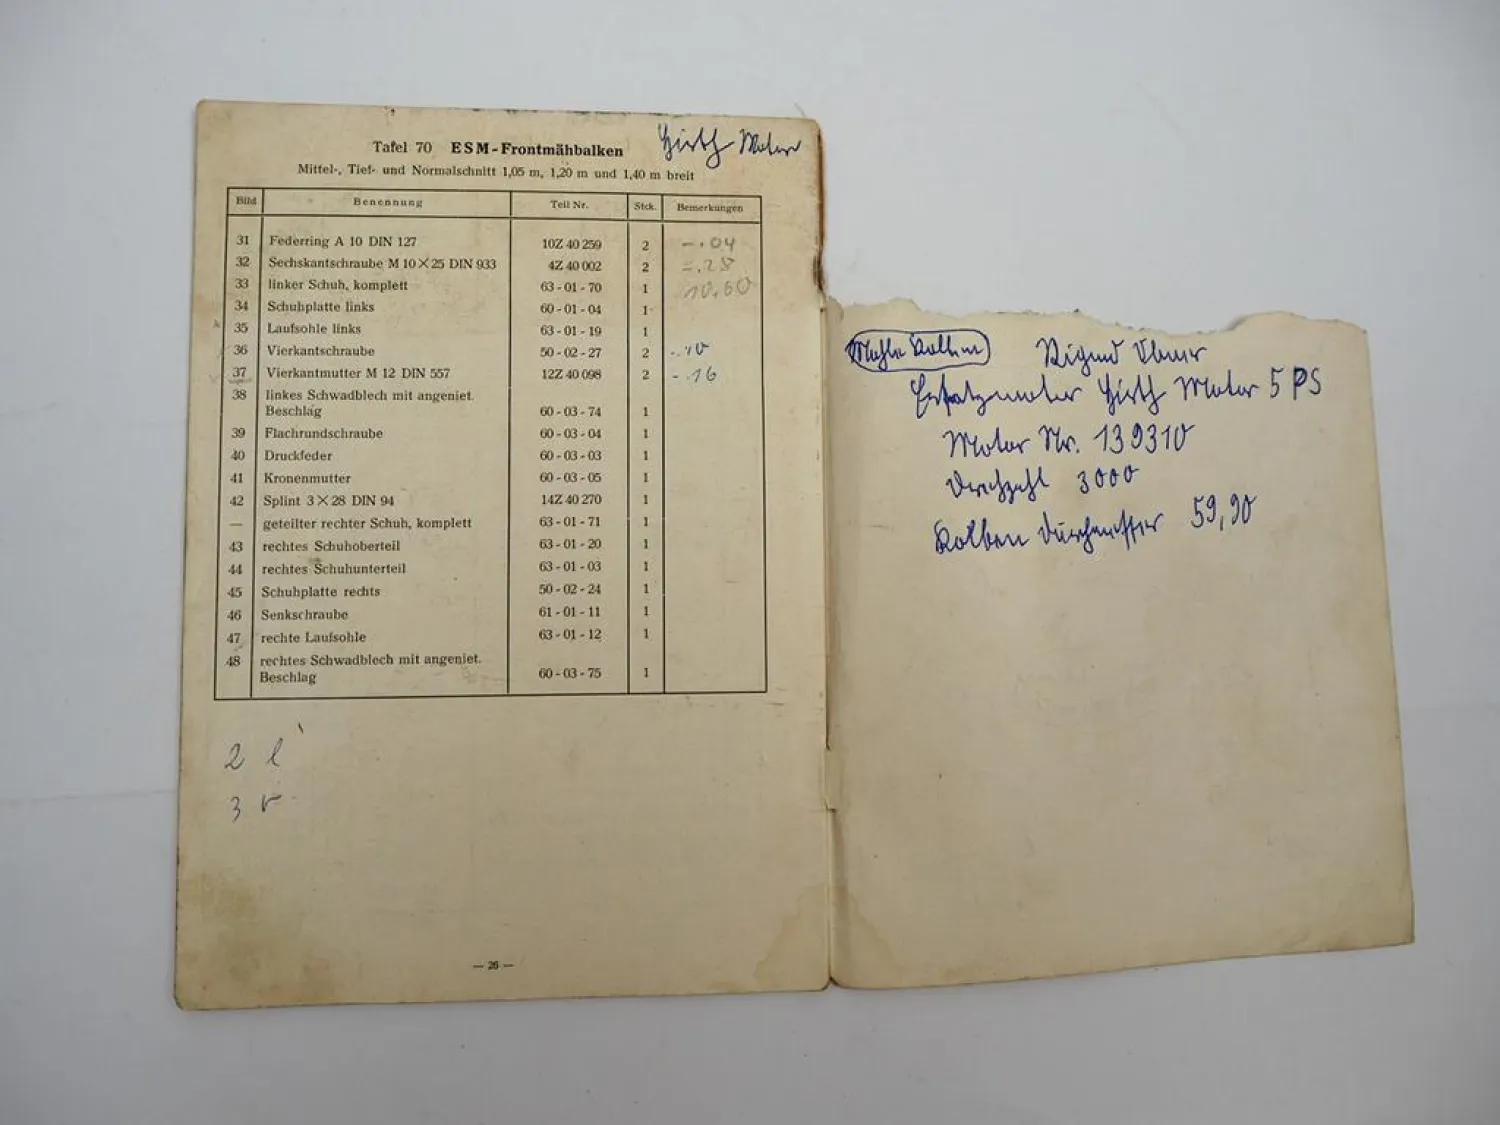 Tafel 70 ESM-Frontmähbalken
Hirth Motor
Mittel-, Tief- und Normalschnitt 1,05 m, 1,20 m und 1,40 m breit
Bild Benennung Teil Nr. Stck. Bemerkungen
31 Federring A 10 DIN 127 10Z 40 259 2 -.04
32 Sechskantschraube M 10×25 DIN 933 4Z 40 002 2 -.28
33 linker Schuh, komplett 63-01-70 1 10.60
34 Schuhplatte links 60-01-04 1
35 Laufsohle links 63-01-19 1
36 Vierkantschraube 50-02-27 2 -.10
37 Vierkantmutter M 12 DIN 557 12Z 40 098 2 -.16
38 linkes Schwadblech mit angeniet.
Beschlag 60-03-74 1
39 Flachrundschraube 60-03-04 1
40 Druckfeder 60-03-03 1
41 Kronenmutter 60-03-05 1
42 Splint 3×28 DIN 94 14Z 40 270 1
— geteilter rechter Schuh, komplett 63-01-71 1
43 rechtes Schuhoberteil 63-01-20 1
44 rechtes Schuhunterteil 63-01-03 1
45 Schuhplatte rechts 50-02-24 1
46 Senkschraube 61-01-11 1
47 rechte Laufsohle 63-01-12 1
48 rechtes Schwadblech mit angeniet.
Beschlag 60-03-75 1
2 l
3 r
— 26 —
Mahle Kolben
Ersatzmotor Hirth Motor 5 PS
Motor Nr. 139310
Drehzahl 3000
Kolben Durchmesser 59,90